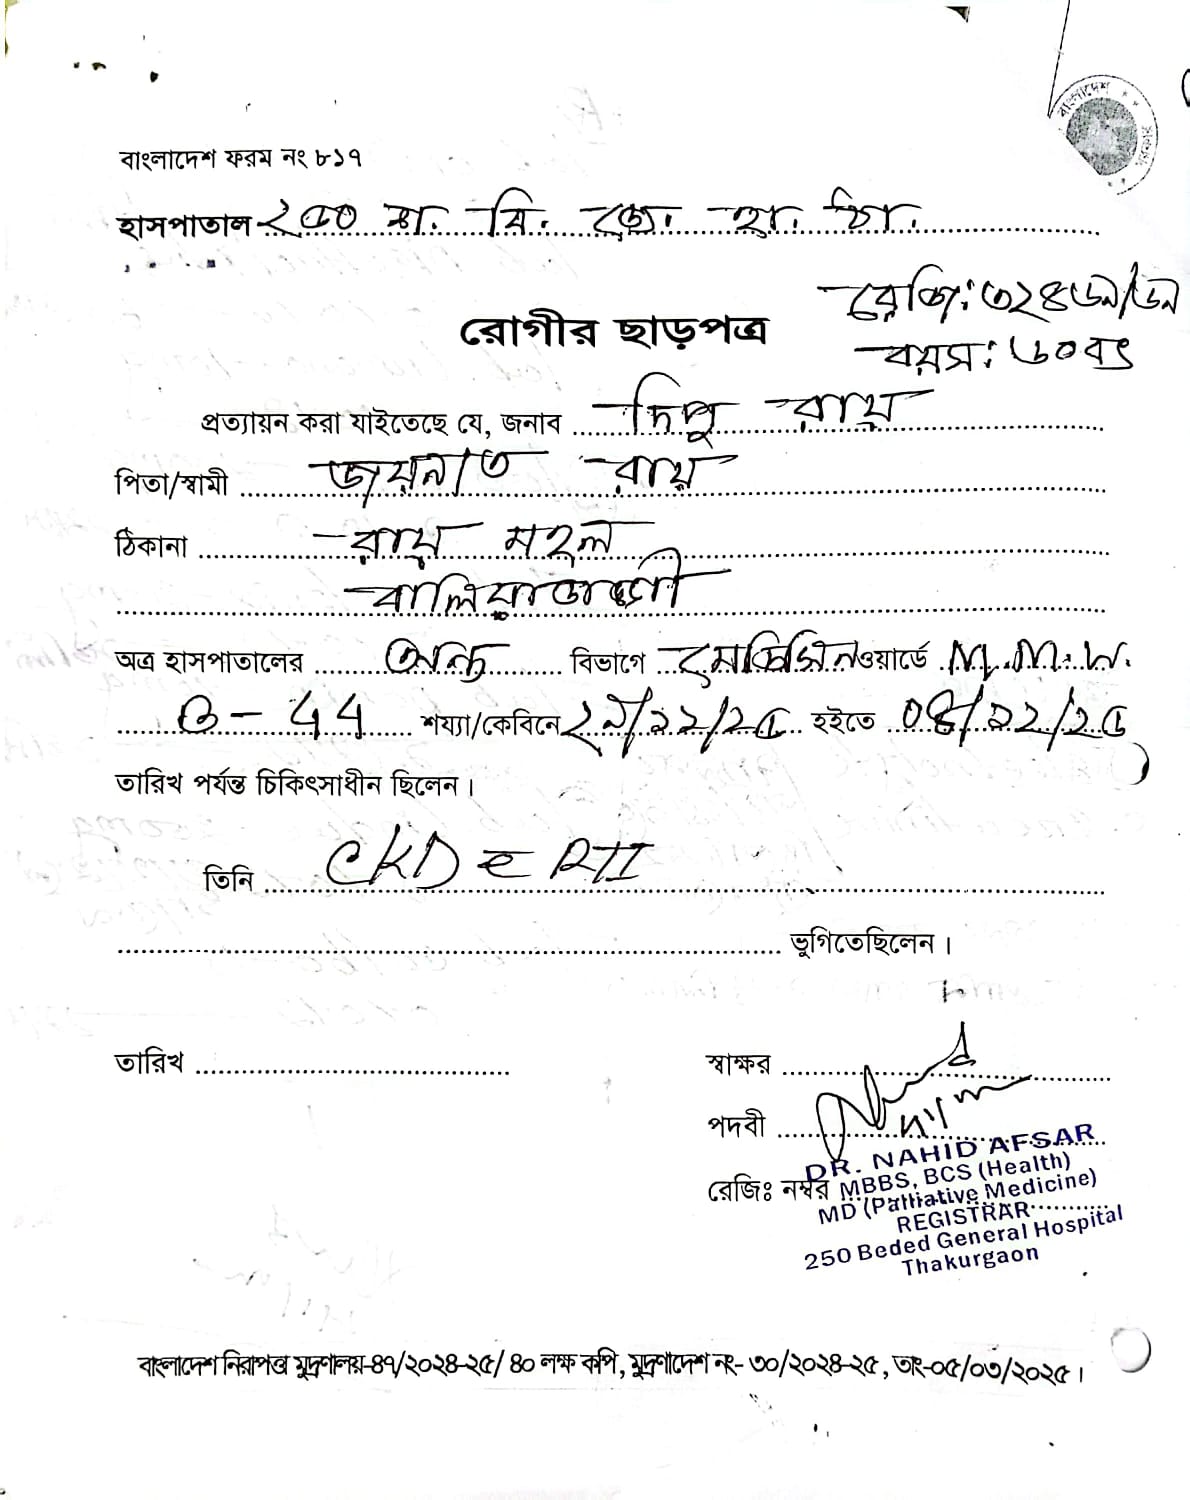 বাংলাদেশ
বাংলাদেশ ফরম নং ৮১৭
হাসপাতাল ২৫০ শ. বি. জে. হা. ঠা.
রেজি: ৩২৪৬৯/৬৯
রোগীর ছাড়পত্র
বয়স: ৬০ বৎ
প্রত্যায়ন করা যাইতেছে যে, জনাব দিপু রায়
পিতা/স্বামী জয়নাত রায়
ঠিকানা রায় মহল
বালিয়াডাঙ্গী
অত্র হাসপাতালের অন্ত বিভাগে মেডিসিন ওয়ার্ডে M.M.W.
B-44 শয্যা/কেবিনে ২৯/১১/২৫ হইতে ০৪/১২/২৫
তারিখ পর্যন্ত চিকিৎসাধীন ছিলেন।
তিনি CKD c̄ RTI
ভুগিতেছিলেন।
তারিখ
স্বাক্ষর
পদবী
রেজিঃ নম্বর
DR. NAHID AFSAR
MBBS, BCS (Health)
MD (Palliative Medicine)
REGISTRAR
250 Beded General Hospital
Thakurgaon
বাংলাদেশ নিরাপত্তা মুদ্রণালয়-৪৭/২০২৪-২৫/ ৪০ লক্ষ কপি, মুদ্রণাদেশ নং- ৩০/২০২৪-২৫, তাং-০৫/০৩/২০২৫।